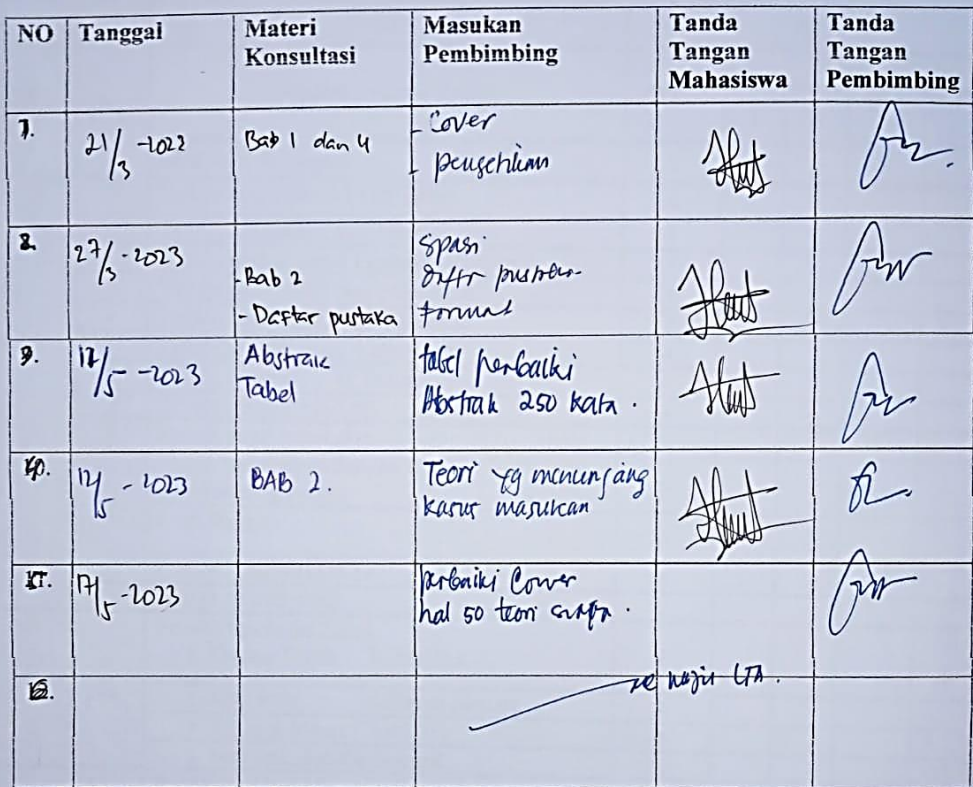 NO Tanggal Materi Konsultasi Masukan Pembimbing Tanda Tangan Mahasiswa Tanda Tangan Pembimbing
7. 21/3 -2022 Bab 1 dan 4 - Cover
- pengetikan
8. 27/3 - 2023 - Bab 2 Spasi
- Daftar pustaka format
9. 12/5 - 2023 Abstrak tabel perbaiki
Tabel Abstrak 250 kata .
10. 12/5 - 2023 BAB 2. Teori yg menunjang
kasus masukan
11. 17/5 - 2023 perbaiki Cover
hal 50 teori
12. LTA.